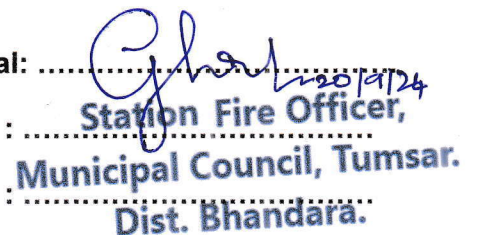 al: ....................
20/9/24
: .... Station Fire Officer,
Municipal Council, Tumsar.
: ....................
Dist. Bhandara.